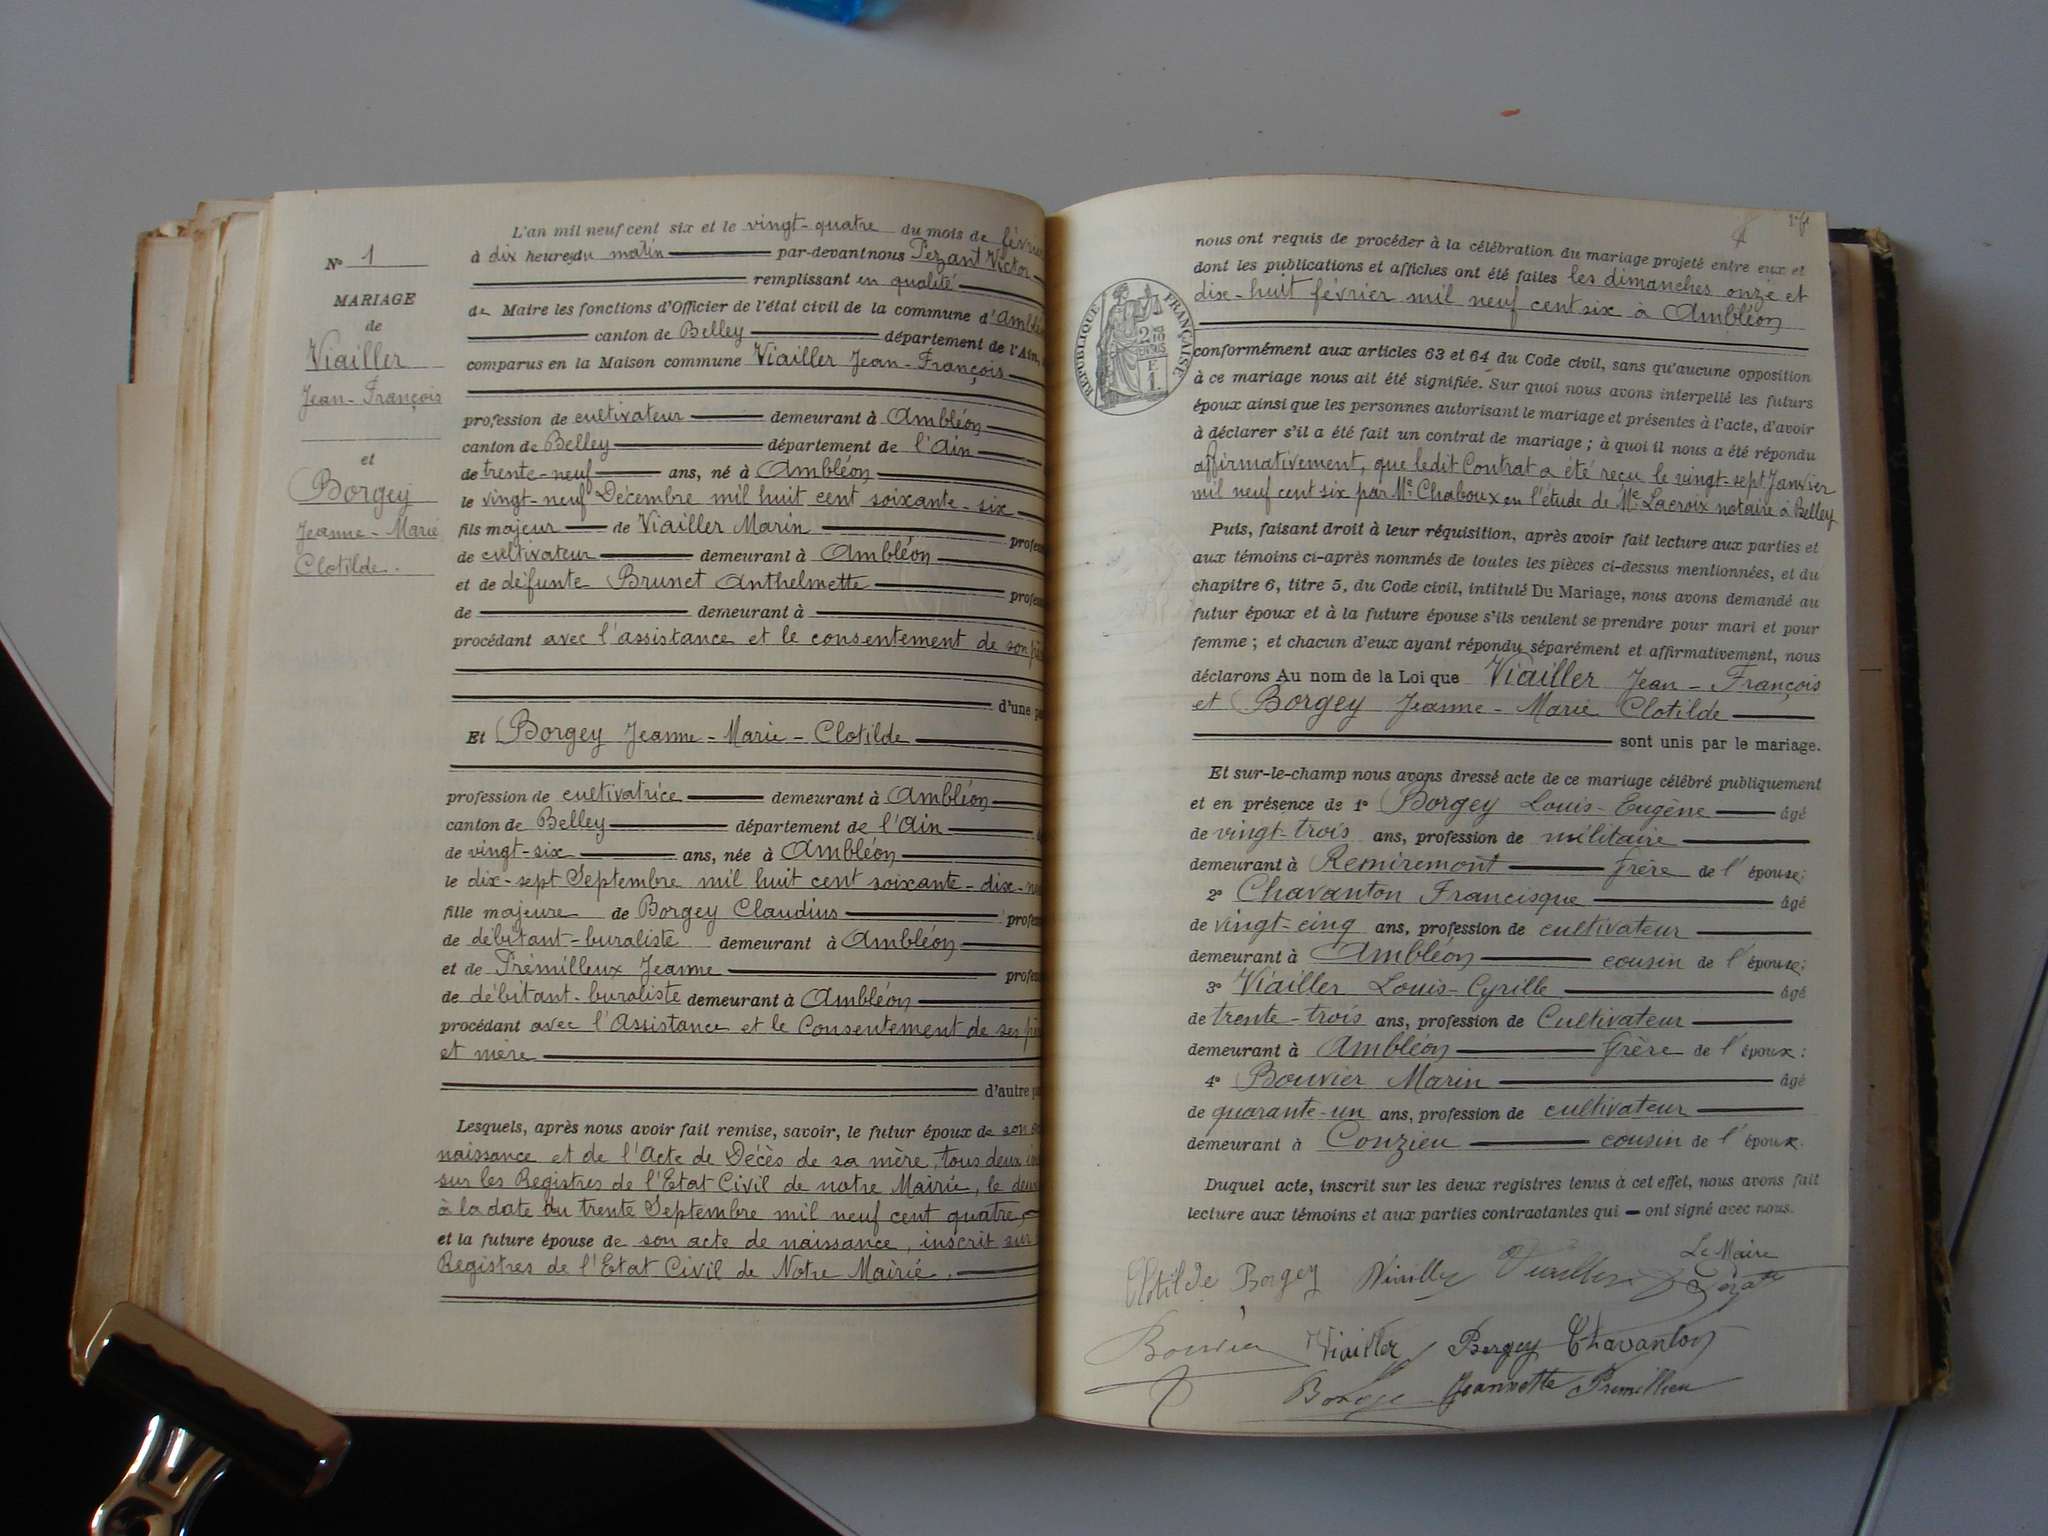 N° 1
MARIAGE
de
Viailler
Jean-François
et
Borgey
Jeanne-Marie
Clotilde.
L'an mil neuf cent six et le vingt-quatre du mois de
à dix heures du matin par-devant nous Pezant Victor
remplissant en qualité
de Maire les fonctions d'Officier de l'état civil de la commune d'
canton de Belley département de l'Ain,
comparus en la Maison commune Viailler Jean-François
profession de cultivateur demeurant à Ambléon
canton de Belley département de l'Ain
de trente-neuf ans, né à Ambléon
le vingt-neuf Décembre mil huit cent soixante-six
fils majeur de Viailler Marin
de cultivateur demeurant à Ambléon
et de défunte Brunet Anthelmette
de demeurant à
procédant avec l'assistance et le consentement de son
d'une
Et Borgey Jeanne-Marie-Clotilde
profession de cultivatrice demeurant à Ambléon
canton de Belley département de l'Ain
de vingt-six ans, née à Ambléon
le dix-sept Septembre mil huit cent soixante-dix-
fille majeure de Borgey Claudius
de débitant-buraliste demeurant à Ambléon
et de Prémilleux Jeanne
de débitant-buraliste demeurant à Ambléon
procédant avec l'Assistance et le Consentement de ses
et mère
d'autre
Lesquels, après nous avoir fait remise, savoir, le futur époux de son
naissance et de l'Acte de Décès de sa mère, tous deux
sur les Registres de l'Etat Civil de notre Mairie, le
à la date du trente Septembre mil neuf cent quatre,
et la future épouse de son acte de naissance, inscrit sur
Registres de l'Etat Civil de Notre Mairie.
RÉPUBLIQUE FRANÇAISE
nous ont requis de procéder à la célébration du mariage projeté entre eux et
dont les publications et affiches ont été faites les dimanches onze et
dix-huit février mil neuf cent six à Ambléon
conformément aux articles 63 et 64 du Code civil, sans qu'aucune opposition
à ce mariage nous ait été signifiée. Sur quoi nous avons interpellé les futurs
époux ainsi que les personnes autorisant le mariage et présentes à l'acte, d'avoir
à déclarer s'il a été fait un contrat de mariage ; à quoi il nous a été répondu
affirmativement, que ledit Contrat a été reçu le vingt-sept Janvier
mil neuf cent six par Me Chaboux en l'étude de Me Lacroix notaire à Belley
Puis, faisant droit à leur réquisition, après avoir fait lecture aux parties et
aux témoins ci-après nommés de toutes les pièces ci-dessus mentionnées, et du
chapitre 6, titre 5, du Code civil, intitulé Du Mariage, nous avons demandé au
futur époux et à la future épouse s'ils veulent se prendre pour mari et pour
femme ; et chacun d'eux ayant répondu séparément et affirmativement, nous
déclarons Au nom de la Loi que Viailler Jean-François
et Borgey Jeanne-Marie Clotilde
sont unis par le mariage.
Et sur-le-champ nous avons dressé acte de ce mariage célébré publiquement
et en présence de 1° Borgey Louis-Eugène âgé
de vingt-trois ans, profession de militaire
demeurant à Remiremont frère de l'épouse;
2° Chavanton Francisque âgé
de vingt-cinq ans, profession de cultivateur
demeurant à Ambléon cousin de l'épouse;
3° Viailler Louis-Cyrille âgé
de trente-trois ans, profession de Cultivateur
demeurant à Ambléon frère de l'époux;
4° Bouvier Marin âgé
de quarante-un ans, profession de cultivateur
demeurant à Conzieu cousin de l'époux.
Duquel acte, inscrit sur les deux registres tenus à cet effet, nous avons fait
lecture aux témoins et aux parties contractantes qui ont signé avec nous.
Le Maire
Clotilde Borgey Viailler Viailler
Bouvier Viailler Borgey Chavanton
Borgey Jeannette Prémillieu